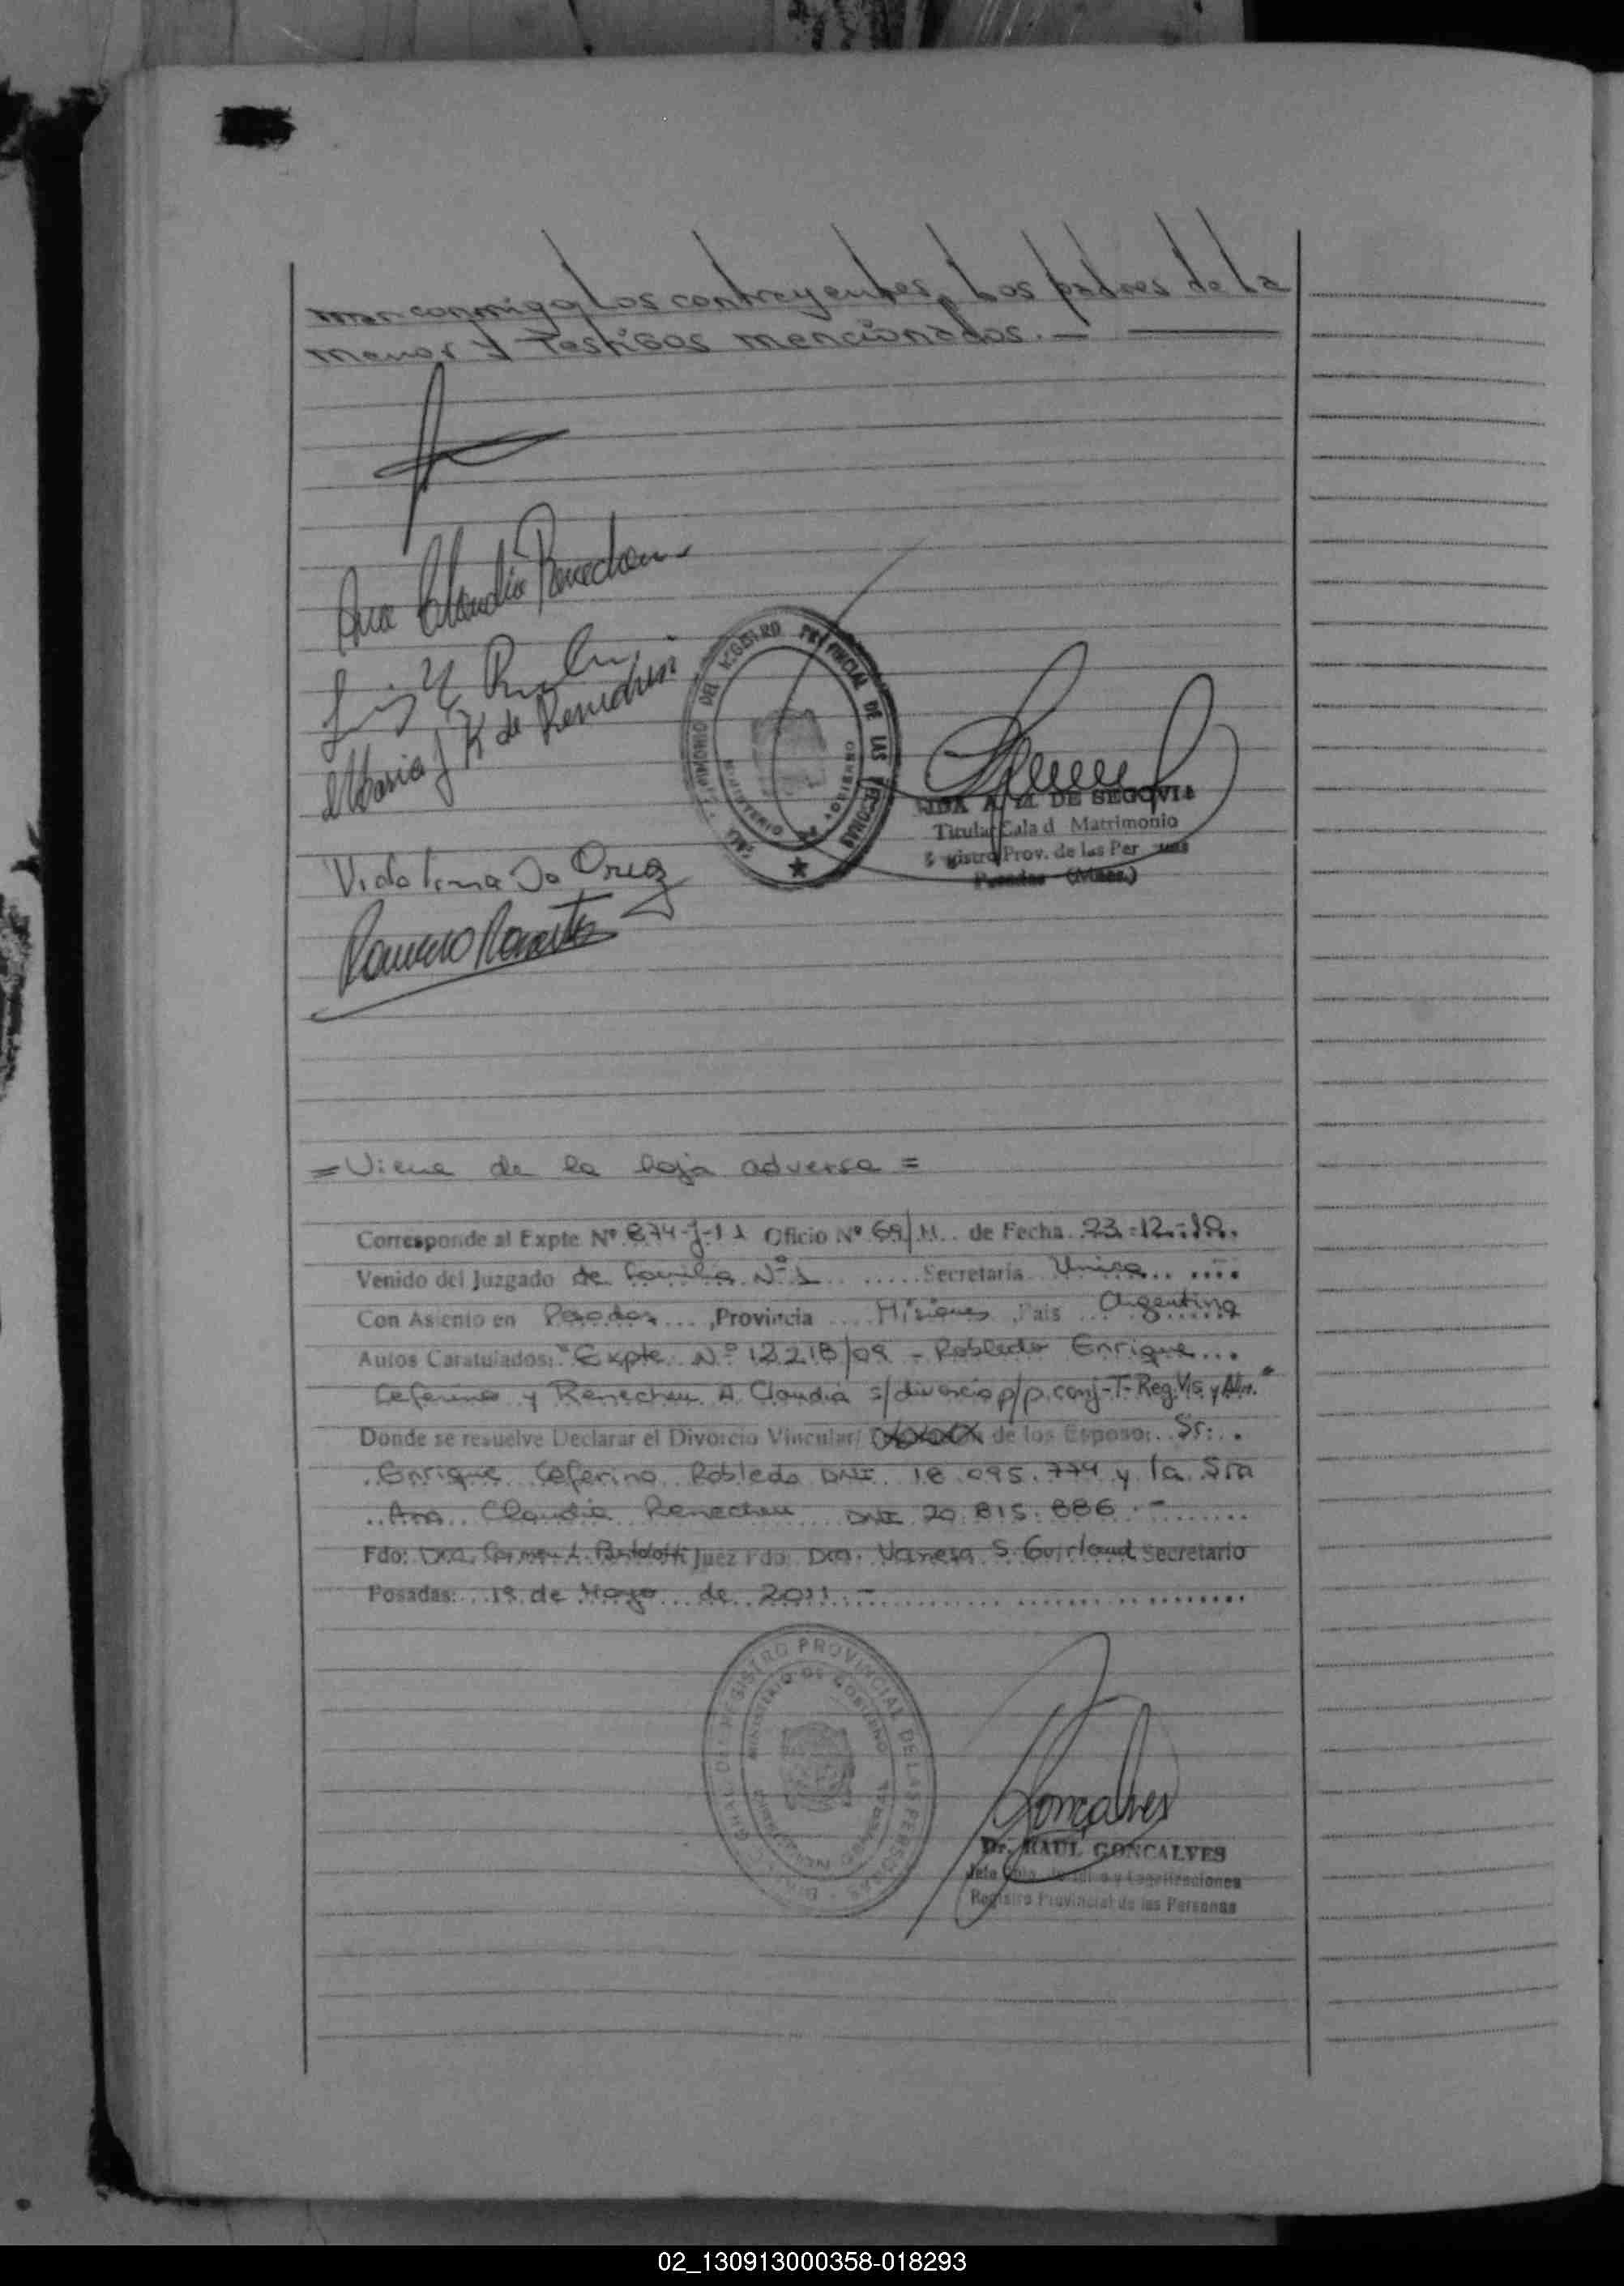 mar conmigo Los contrayentes, Los padres de La
menor y Testigos mencionados.—
Ana Claudia Renecheu
Maria J K de Renecheu
Romero
REGISTRO PROVINCIAL DE LAS PERSONAS
DE SEGOVIA
Titular Sala d Matrimonio
gistro Prov. de las Per
Posadas (Mnes.)
= Viene de la hoja adversa =
Corresponde al Expte Nº 874-J-11 Oficio Nº 69/11 de Fecha 23-12-10.
Venido del Juzgado de Familia Nº 1 Secretaría Unica
Con Asiento en Posadas, Provincia Misiones País Argentina
Autos Caratulados: "Expte Nº 12.218/09 - Robledo Enrique
Ceferino y Renecheu A. Claudia s/divorcio p/p. conj-T-Reg.Vis y Alim."
Donde se resuelve Declarar el Divorcio Vincular/ de los Esposo: Sr:
Enrique Ceferino Robledo DNI 18.095.774 y la Sra
Ana Claudia Renecheu DNI 20.815.886.-
Fdo: Dra. Carmen Juez Fdo: Dra. Vanesa S. Guirland Secretario
Posadas: 19 de Mayo de 2011.-
REGISTRO PROVINCIAL DE LAS PERSONAS
MINISTERIO DE GOBIERNO
Goncalves
Dr. RAUL GONCALVES
Jefe y Legalizaciones
Registro Provincial de las Personas
02_130913000358-018293